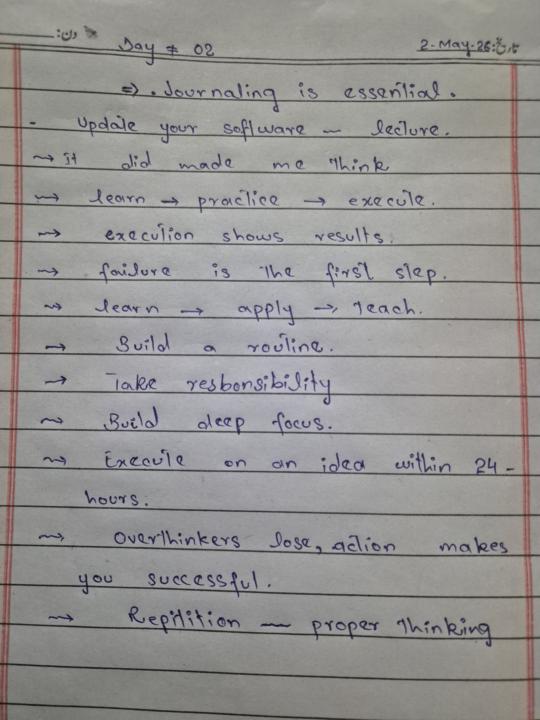 دن:
Day # 02
تاریخ: 2-May-26
⇒ . Journaling is essential.
- Update your software — lecture.
→ it did made me think
→ learn → practice → execute.
→ execution shows results.
→ failure is the first step.
→ learn → apply → Teach.
→ Build a routine.
→ Take responsibility
→ Build deep focus.
→ Execute on an idea within 24-
hours.
→ Overthinkers lose, action makes
you successful.
→ Repitition — proper thinking